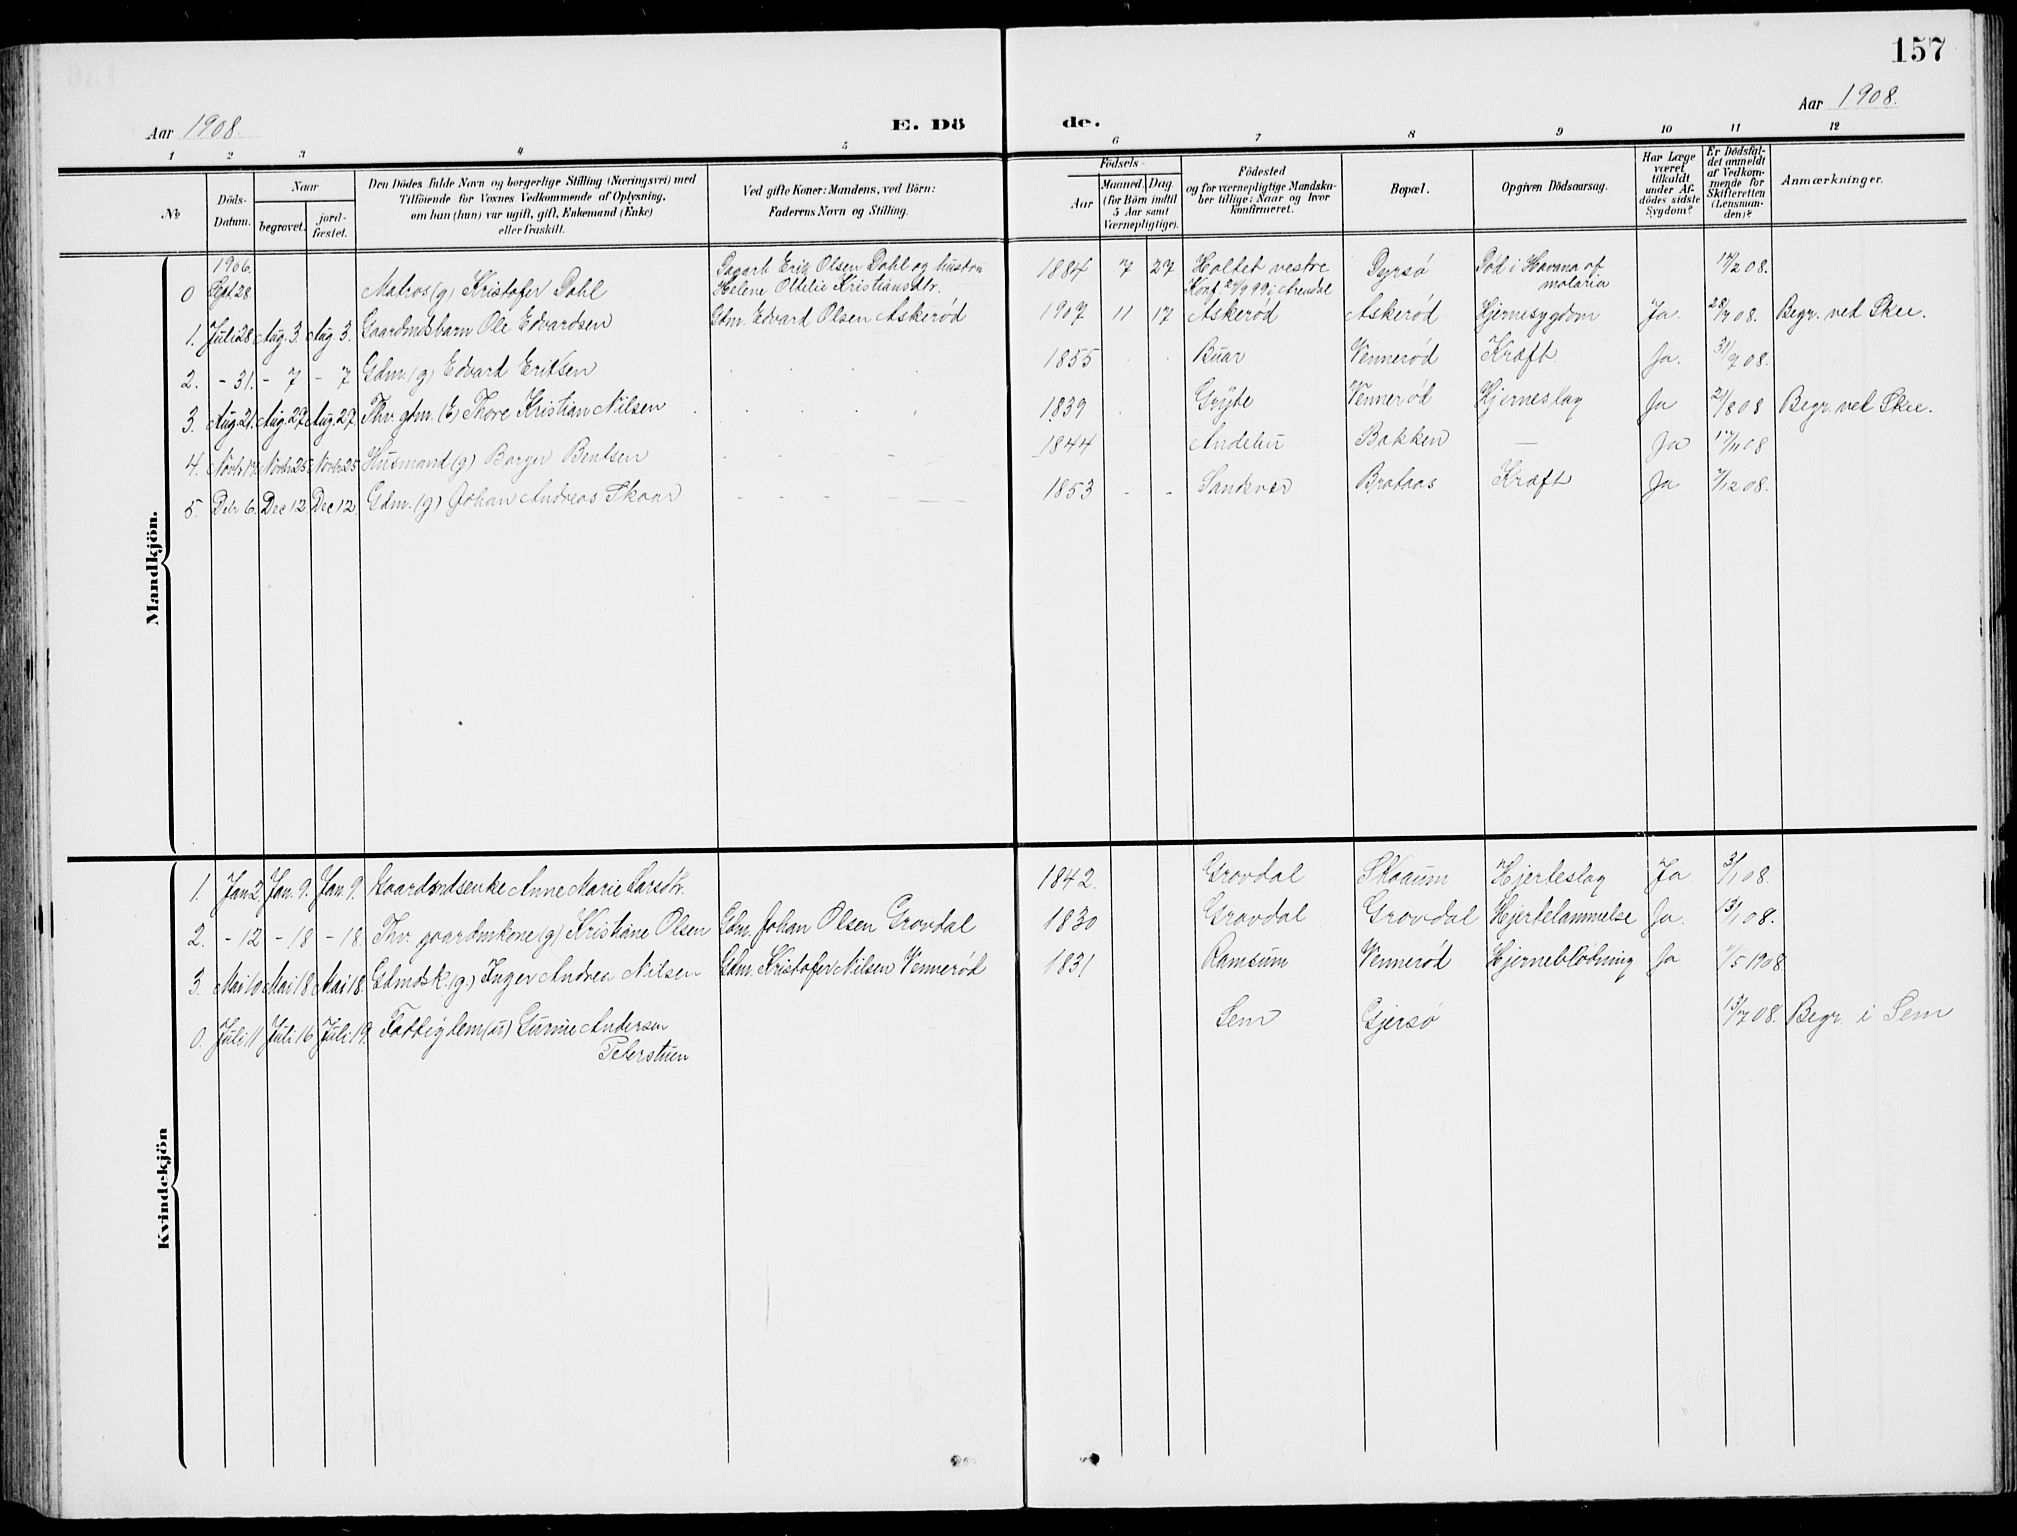 157
Aar 1908.
E. Dö
de.
Aar 1908.
1 2 3 4 5 6 7 8 9 10 11 12
No
Döds-
Datum.
Naar
begravet.
jord-
fæstet.
Den Dödes fulde Navn og borgerlige Stilling (Næringsvei) med
Tilföiende for Voxnes Vedkommende af Oplysning,
om han (hun) var ugift, gift, Enkemand (Enke)
eller fraskilt.
Ved gifte Koner: Mandens, ved Börn:
Faderens Navn og Stilling.
Födsels-
Aar
Maaned. Dag.
(for Börn indtil
5 Aar samt
Værnepligtige).
Födested
og for værnepligtige Mandska-
ber tillige: Naar og hvor
konfirmeret.
Bopæl.
Opgiven Dödsaarsag.
Har Læge
været
tilkaldt
under Af-
dödes sidste
Sygdom?
Er Dödsfal-
det anmeldt
af Vedkom-
mende for
Skifteretten
(Lensman-
den)?
Anmærkninger.
Mandkjön.
1906. Dagarb. Erik Olsen Dahl og hustru
0 Sept 28 Matros (g) Kristofer Dahl Helene Ottilie Kristiansdtr. 1884 7 27 Holtet vestre Dyrsø Död i Havana af 08.
Konf 24/9 99 i Arendal malaria
1. Juli 28 Aug. 3. Aug. 3. Gaardmdsbarn Ole Edvardsen Gdm. Edvard Olsen Askerød 1907 11 17 Askerød Askerød Hjernesygdom Ja. 28/7 08. Begr. ved Skee.
2. - 31. - 7 - 7 Gdm. (g) Edvard Eriksen 1855 Buar Vennerød Kræft Ja. 31/7 08.
3. Aug. 21. Aug. 27 Aug. 27 Fhv. gdm. (E) Thore Kristian Nilsen 1839 Gryte Vennerød Hjerneslag Ja 21/8 08 Begr. ved Skee.
4. Novbr. 17. Novbr. 25 Novbr. 25 Husmand (g) Borger Bentsen 1844 Andebu Bakken — Ja 17/11 08
5. Debr 6. Dec 12 Dec 12 Gdm. (g) Johan Andreas Skaar 1853 Sandsvær Brataas Kræft Ja 7/12 08.
Kvindekjön
1. Jan. 2 Jan. 9. Jan. 9. Gaardmdsenke Anne Marie Larsdtr. 1842. Gravdal Skaaum Hjerteslag Ja. 3/1 08.
2. - 12 - 18 - 18. Fhv. gaardmkone (g) Kristiane Olsen Gdm. Johan Olsen Gravdal 1830 Gravdal Gravdal Hjertelammelse Ja. 13/1 08.
3. Mai 10 Mai 18 Mai 18. Gdmdsk. (g.) Inger Andrea Nilsen Gdm. Kristofer Nilsen Vennerød 1831 Ramsum Vennerød Hjerneblødning Ja 11/5 1908.
0. Juli 11 Juli 16 Juli 19. Fattiglem (u) Gurine Andersen Sem Gjersø 13/7 08. Begr. i Sem
Peterstuen